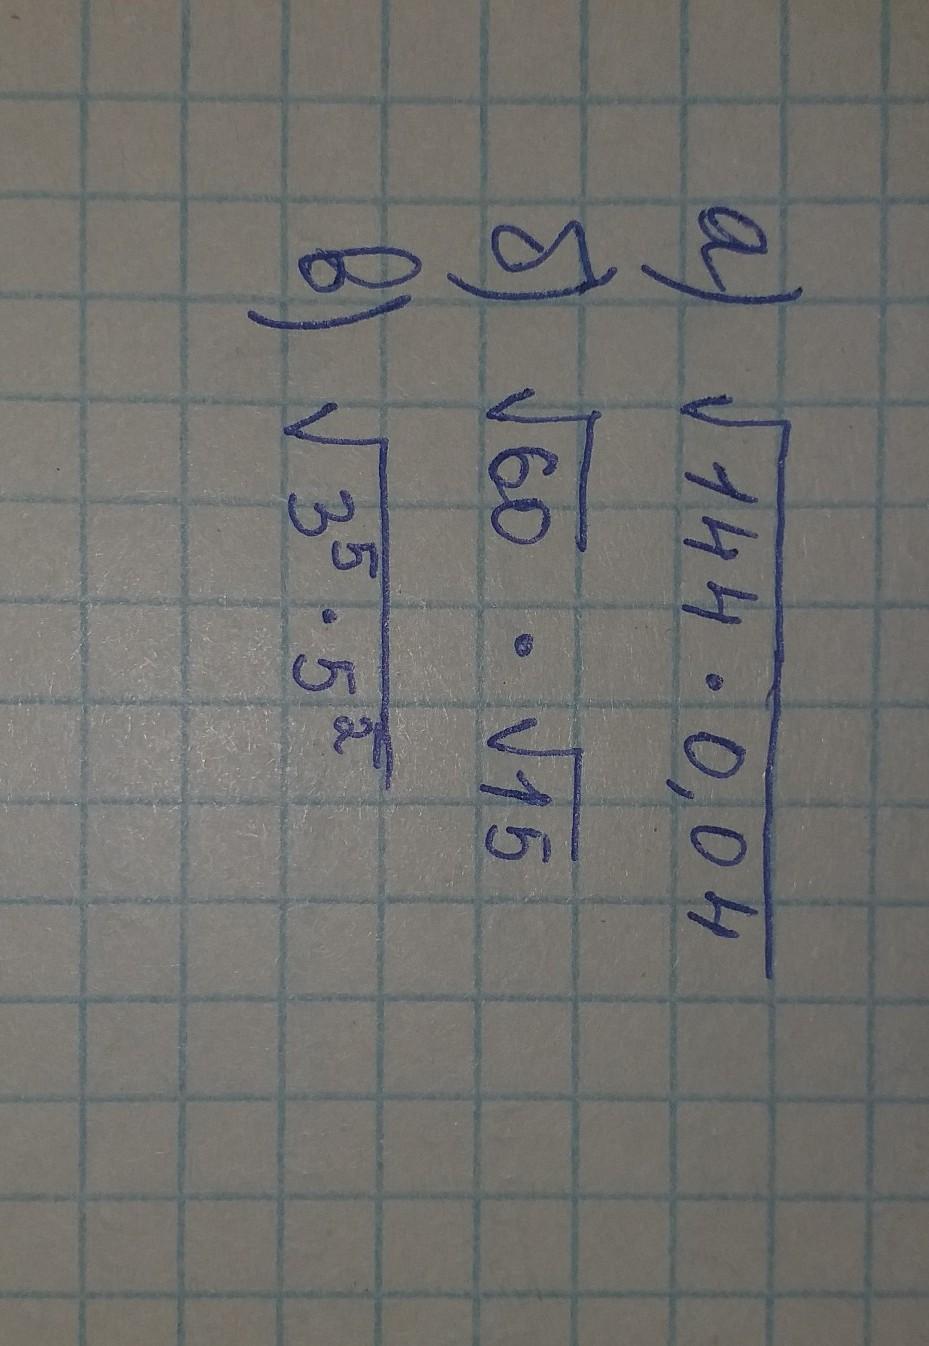 а) √144 · 0,04
б) √60 · √15
в) √3⁵ · 5²